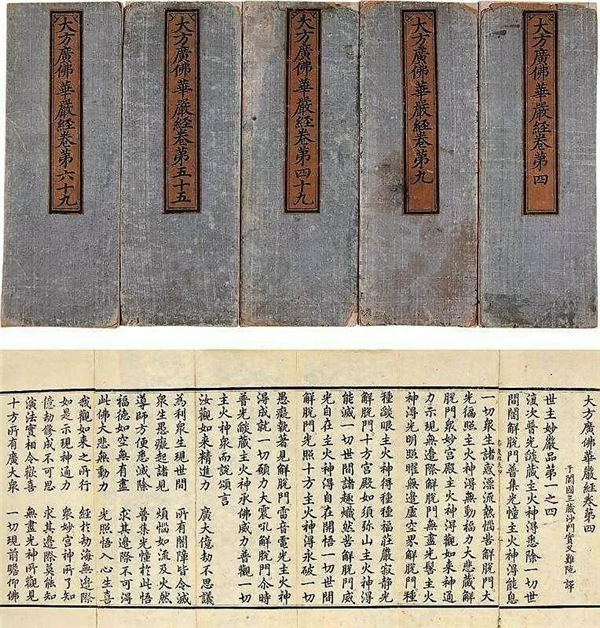 大方廣佛華嚴經卷第四
大方廣佛華嚴經卷第九
大方廣佛華嚴經卷第四十九
大方廣佛華嚴經卷第五十五
大方廣佛華嚴經卷第六十九
大方廣佛華嚴經卷第四
于闐國三藏沙門實叉難陀 譯
世主妙嚴品第一之四
復次普光燄藏主火神得悉除一切世
間闇解脫門普集光幢主火神得能息
一切衆生諸惑漂流熱惱苦解脫門大
光徧照主火神得無動福力大悲藏解
脫門衆妙宮殿主火神得觀如來神通
力示現無邊際解脫門無盡光髻主火
神得光明照耀無邊虛空界解脫門種
種燄眼主火神得種種福莊嚴寂靜光
解脫門十方宮殿如須彌山主火神得
能滅一切世間諸趣熾然苦解脫門威
光自在主火神得自在開悟一切世間
解脫門光照十方主火神得永破一切
愚癡執著見解脫門雷音電光主火神
得成就一切願力大震吼解脫門尒時
普光燄藏主火神承佛威力普觀一切
主火神衆而說頌言
汝觀如來精進力 廣大億劫不思議
為利衆生現世間 所有闇障皆令滅
衆生愚癡起諸見 煩惱如流及火然
導師方便悉滅除 普集光幢於此悟
福德如空無有盡 求其邊際不可得
此佛大悲無動力 光照悟入心生喜
我觀如來之所行 經於劫海無邊際
如是示現神通力 衆妙宮神所了知
億劫修成不可思 求其邊際莫能知
演法實相令歡喜 無盡光神所觀見
十方所有廣大衆 一切現前瞻仰佛